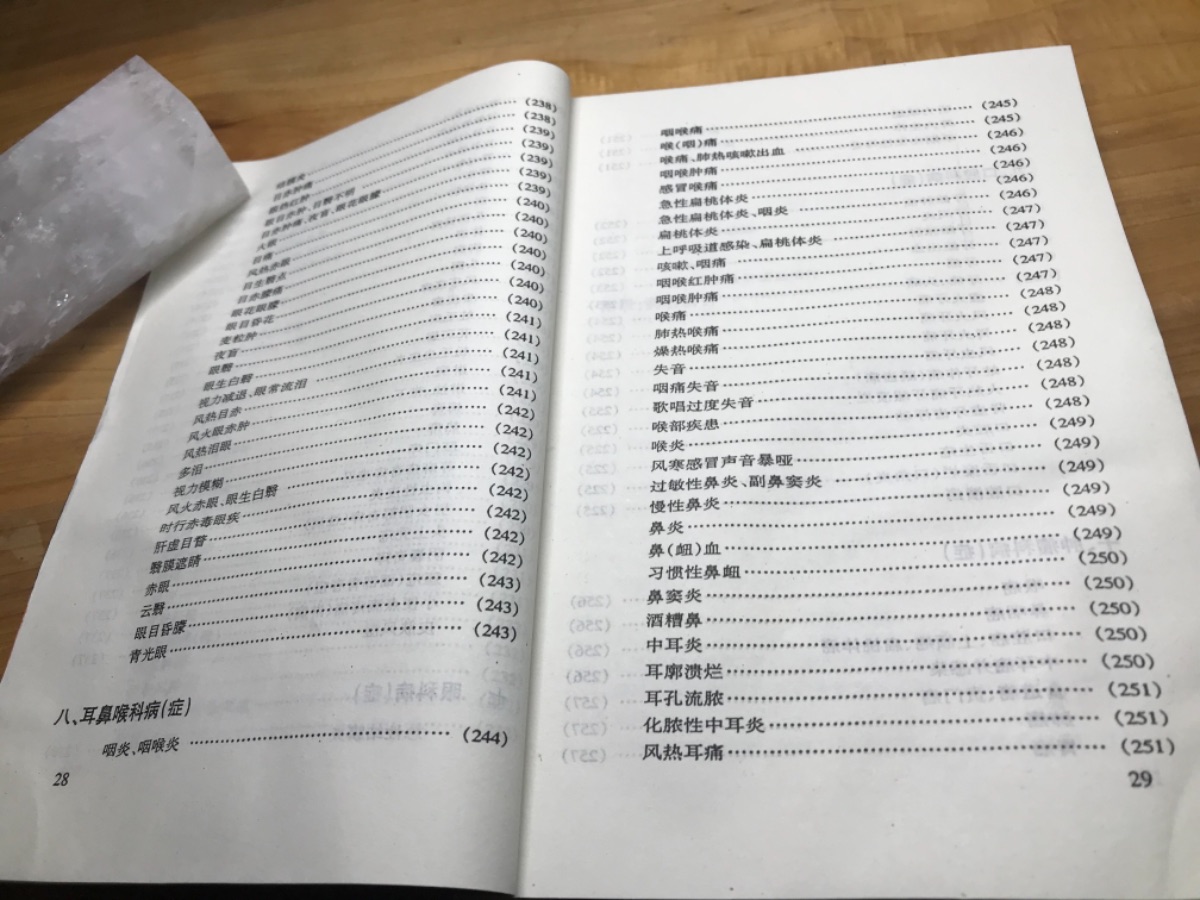 结膜炎……(238)
目赤肿痛……(238)
眼热红肿……(239)
眼目赤肿、目翳不明……(239)
目赤肿痛、夜盲、眼花眼矇……(239)
火眼……(239)
目痛……(239)
风热赤眼……(240)
目生翳点……(240)
目赤矇痛……(240)
眼花眼矇……(240)
眼目昏花……(240)
麦粒肿……(240)
夜盲……(240)
眼翳……(241)
眼生白翳……(241)
视力减退、眼常流泪……(241)
风热目赤……(241)
风火眼赤肿……(241)
风热泪眼……(242)
多泪……(242)
视力模糊……(242)
风火赤眼、眼生白翳……(242)
时行赤毒眼疾……(242)
肝虚目眚……(242)
翳膜遮睛……(242)
赤眼……(242)
云翳……(243)
眼目昏矇……(243)
青光眼……(243)
八、耳鼻喉科病(症)
咽炎、咽喉炎……(244)
28
咽喉痛……(245)
喉(咽)痛……(245)
喉痛、肺热咳嗽出血……(246)
咽喉肿痛……(246)
感冒喉痛……(246)
急性扁桃体炎……(246)
急性扁桃体炎、咽炎……(246)
扁桃体炎……(247)
上呼吸道感染、扁桃体炎……(247)
咳嗽、咽痛……(247)
咽喉红肿痛……(247)
咽喉肿痛……(247)
喉痛……(248)
肺热喉痛……(248)
燥热喉痛……(248)
失音……(248)
咽痛失音……(248)
歌唱过度失音……(248)
喉部疾患……(248)
喉炎……(249)
风寒感冒声音暴哑……(249)
过敏性鼻炎、副鼻窦炎……(249)
慢性鼻炎……(249)
鼻炎……(249)
鼻(衄)血……(249)
习惯性鼻衄……(250)
鼻窦炎……(250)
酒糟鼻……(250)
中耳炎……(250)
耳廓溃烂……(250)
耳孔流脓……(251)
化脓性中耳炎……(251)
风热耳痛……(251)
29